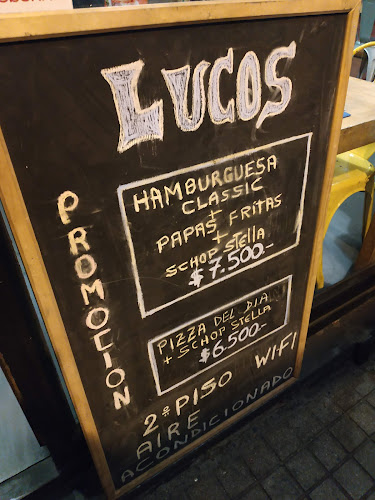 LUCOS
PROMOCION
HAMBURGUESA
CLASSIC
+
PAPAS FRITAS
+
SCHOP STELLA
$7.500.-
PIZZA DEL DIA
+ SCHOP STELLA
$6.500.-
2º PISO WIFI
AIRE
ACONDICIONADO